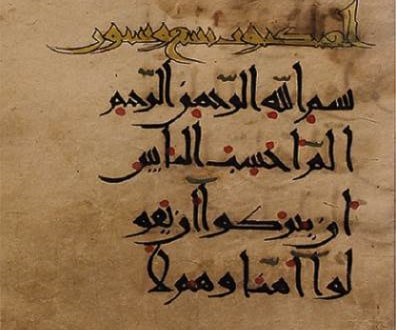 العنكبوت وستون
بسم الله الرحمن الرحيم
الم احسب الناس
ان يتركوا ان يقو
لوا امنا وهم لا